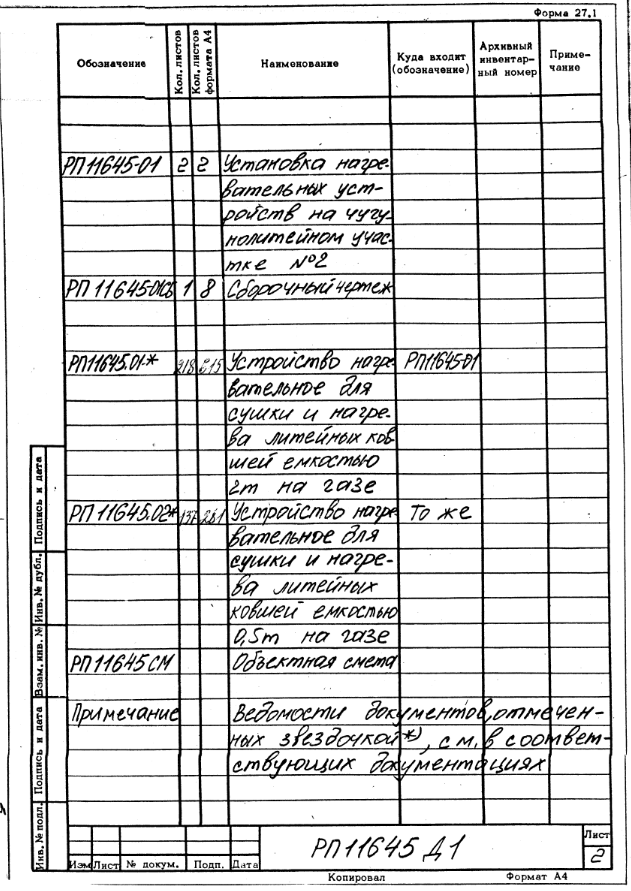 Форма 27.1
Обозначение Кол. листов Кол. листов формата А4 Наименование Куда входит (обозначение) Архивный инвентарный номер Примечание
РП11645-01 2 2 Установка нагре-
вательных уст-
ройств на чугу-
нолитейном учас-
тке №2
РП 11645-01СБ 1 8 Сборочный чертеж
РП11645.01* 218 Устройство нагре РП11645-01
вательное для
сушки и нагре
ва литейных ков
шей емкостью
2т на газе
РП 11645.02* 137 261 Устройство нагре То же
вательное для
сушки и нагре-
ва литейных
ковшей емкостью
0,5т на газе
РП11645 СМ Объектная смета
Примечание Ведомости документов, отмечен-
ных звездочкой*), см. в соответ-
ствующих документациях
Инв. № подл. Подпись и дата Взам. инв. № Инв. № дубл. Подпись и дата
Изм Лист № докум. Подп. Дата
РП11645 Д1
Лист
2
Копировал Формат А4